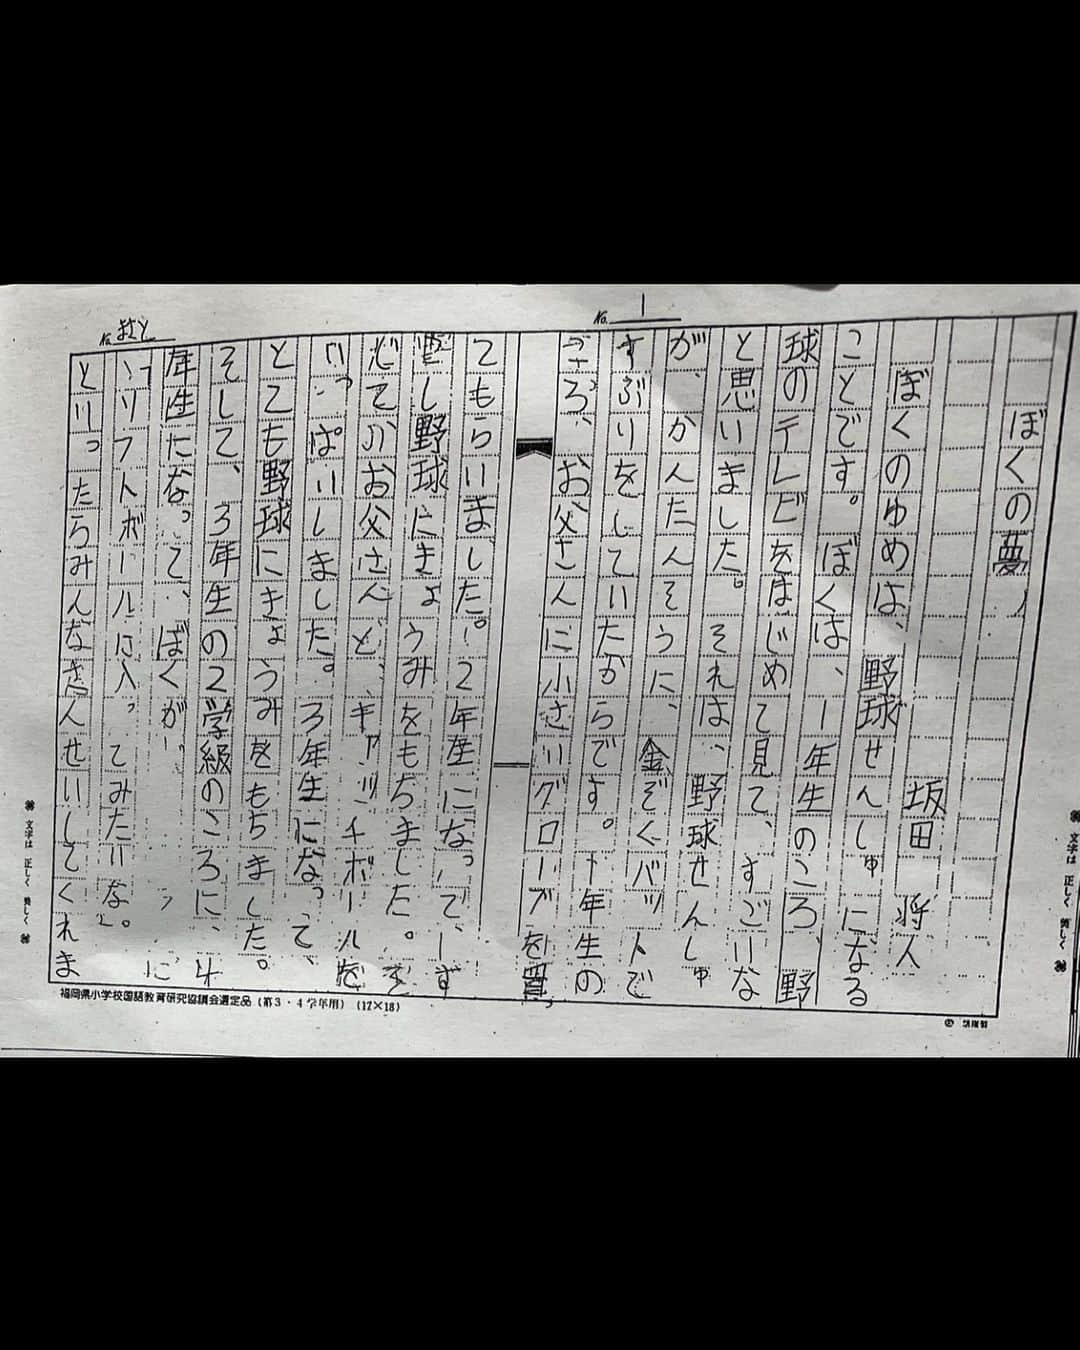 No. 1
ぼくの夢
坂田 将人
ぼくのゆめは、野球せんしゅになる
ことです。ぼくは、1年生のころ、野
球のテレビをはじめて見て、すごいな
と思いました。それは、野球せんしゅ
が、かんたんそうに、金ぞくバットで
すぶりをしていたからです。1年生の
ころ、お父さんに小さいグローブを買っ
てもらいました。2年生になって、
し野球にきょうみをもちました。
お父さんと、キャッチボールを
いっぱいしました。3年生になって、
とても野球にきょうみをもちました。
そして、3年生の2学級のころに、4
年生になって、ぼくが、
ソフトボールに入ってみたいな。」
といったらみんなさんせいしてくれま
No.
福岡県小学校国語教育研究協議会選定品(第3・4学年用)(17×18)
文字は 正しく 美しく
文字は 正しく 美しく